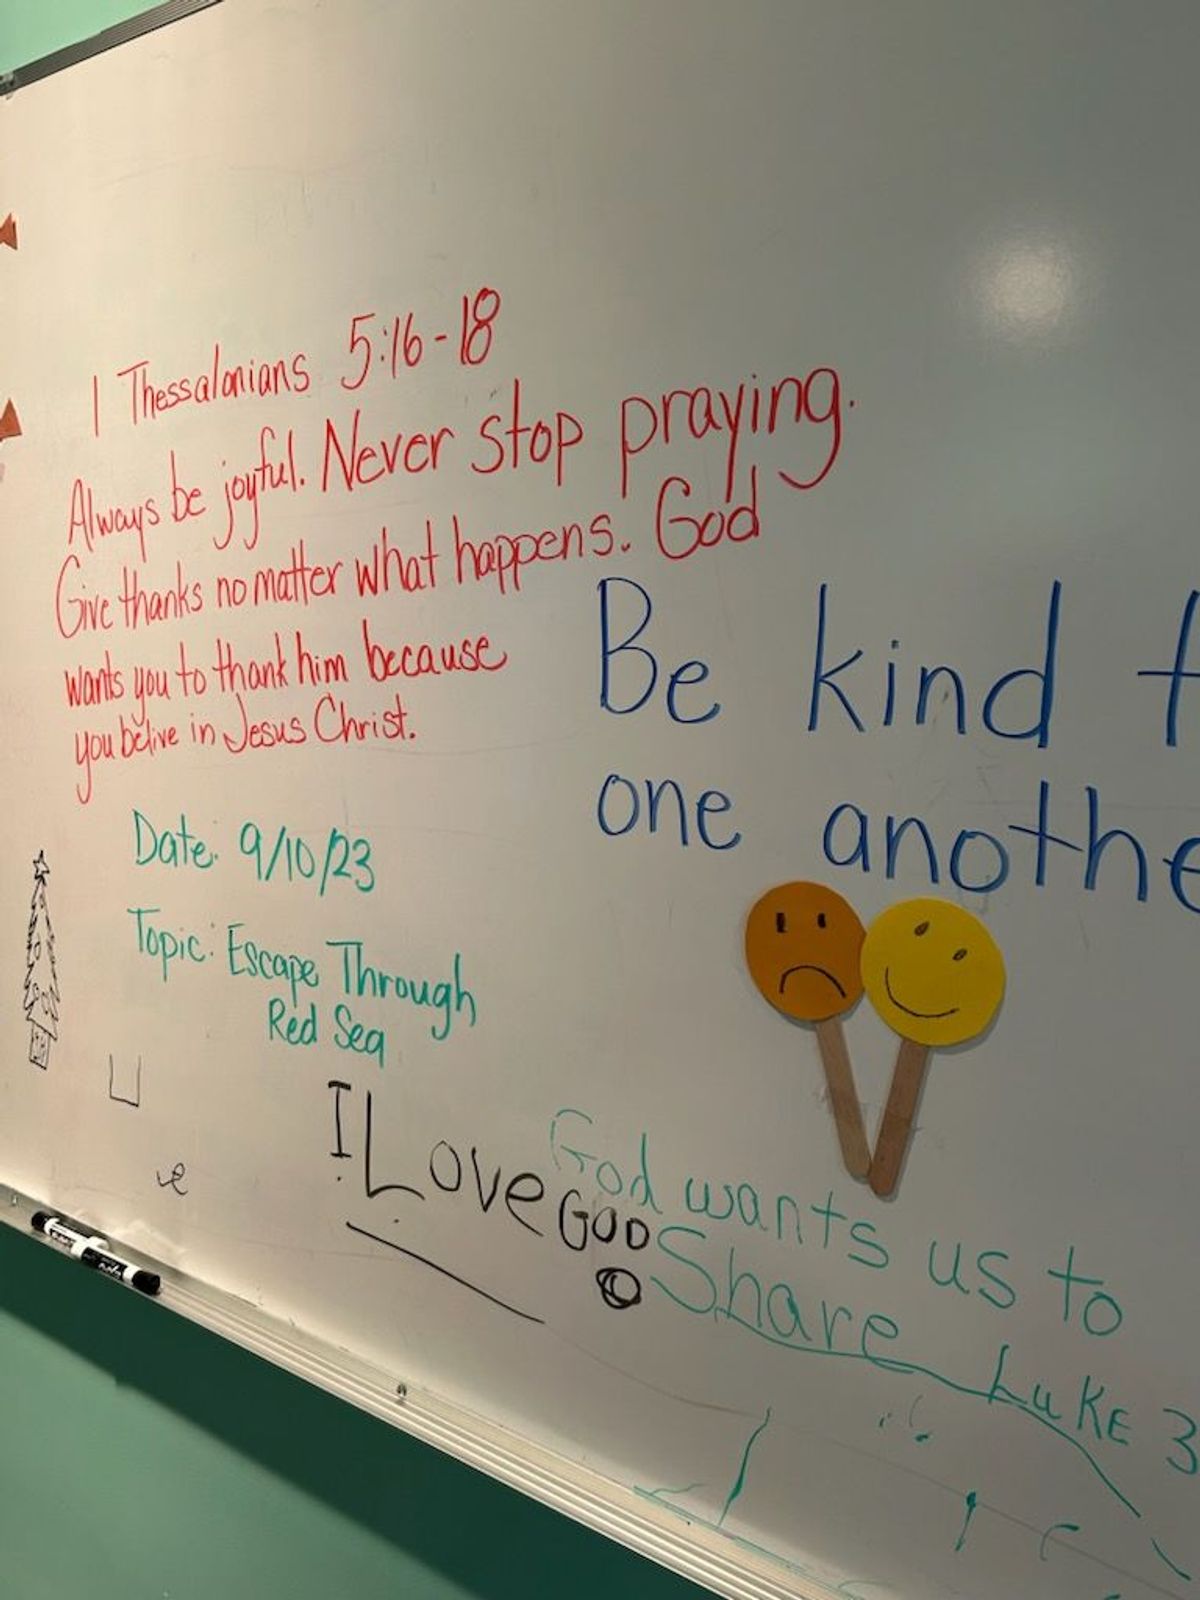 1 Thessalonians 5:16-18
Always be joyful. Never stop praying.
Give thanks no matter what happens. God
wants you to thank him because
you belive in Jesus Christ.
Be kind t
one anothe
Date: 9/10/23
Topic: Escape Through
Red Sea
I Love GOD
God wants us to
Share Luke 3